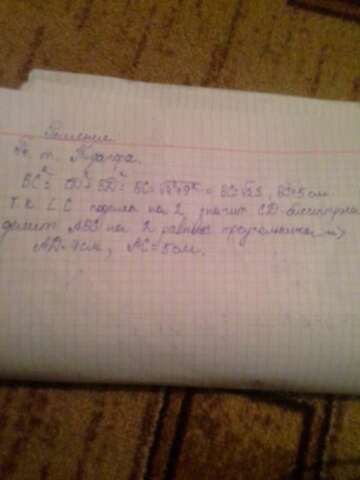 Решение
По т. Пифагора.
BC² = CD² + BD² = BC = √4²+3² = BC = √25, BC = 5 см
Т.к. ∠C поделен на 2 значит CD - биссектриса
делит ABC на 2 равных треугольника =>
AD = 4 см, AC = 5 см.